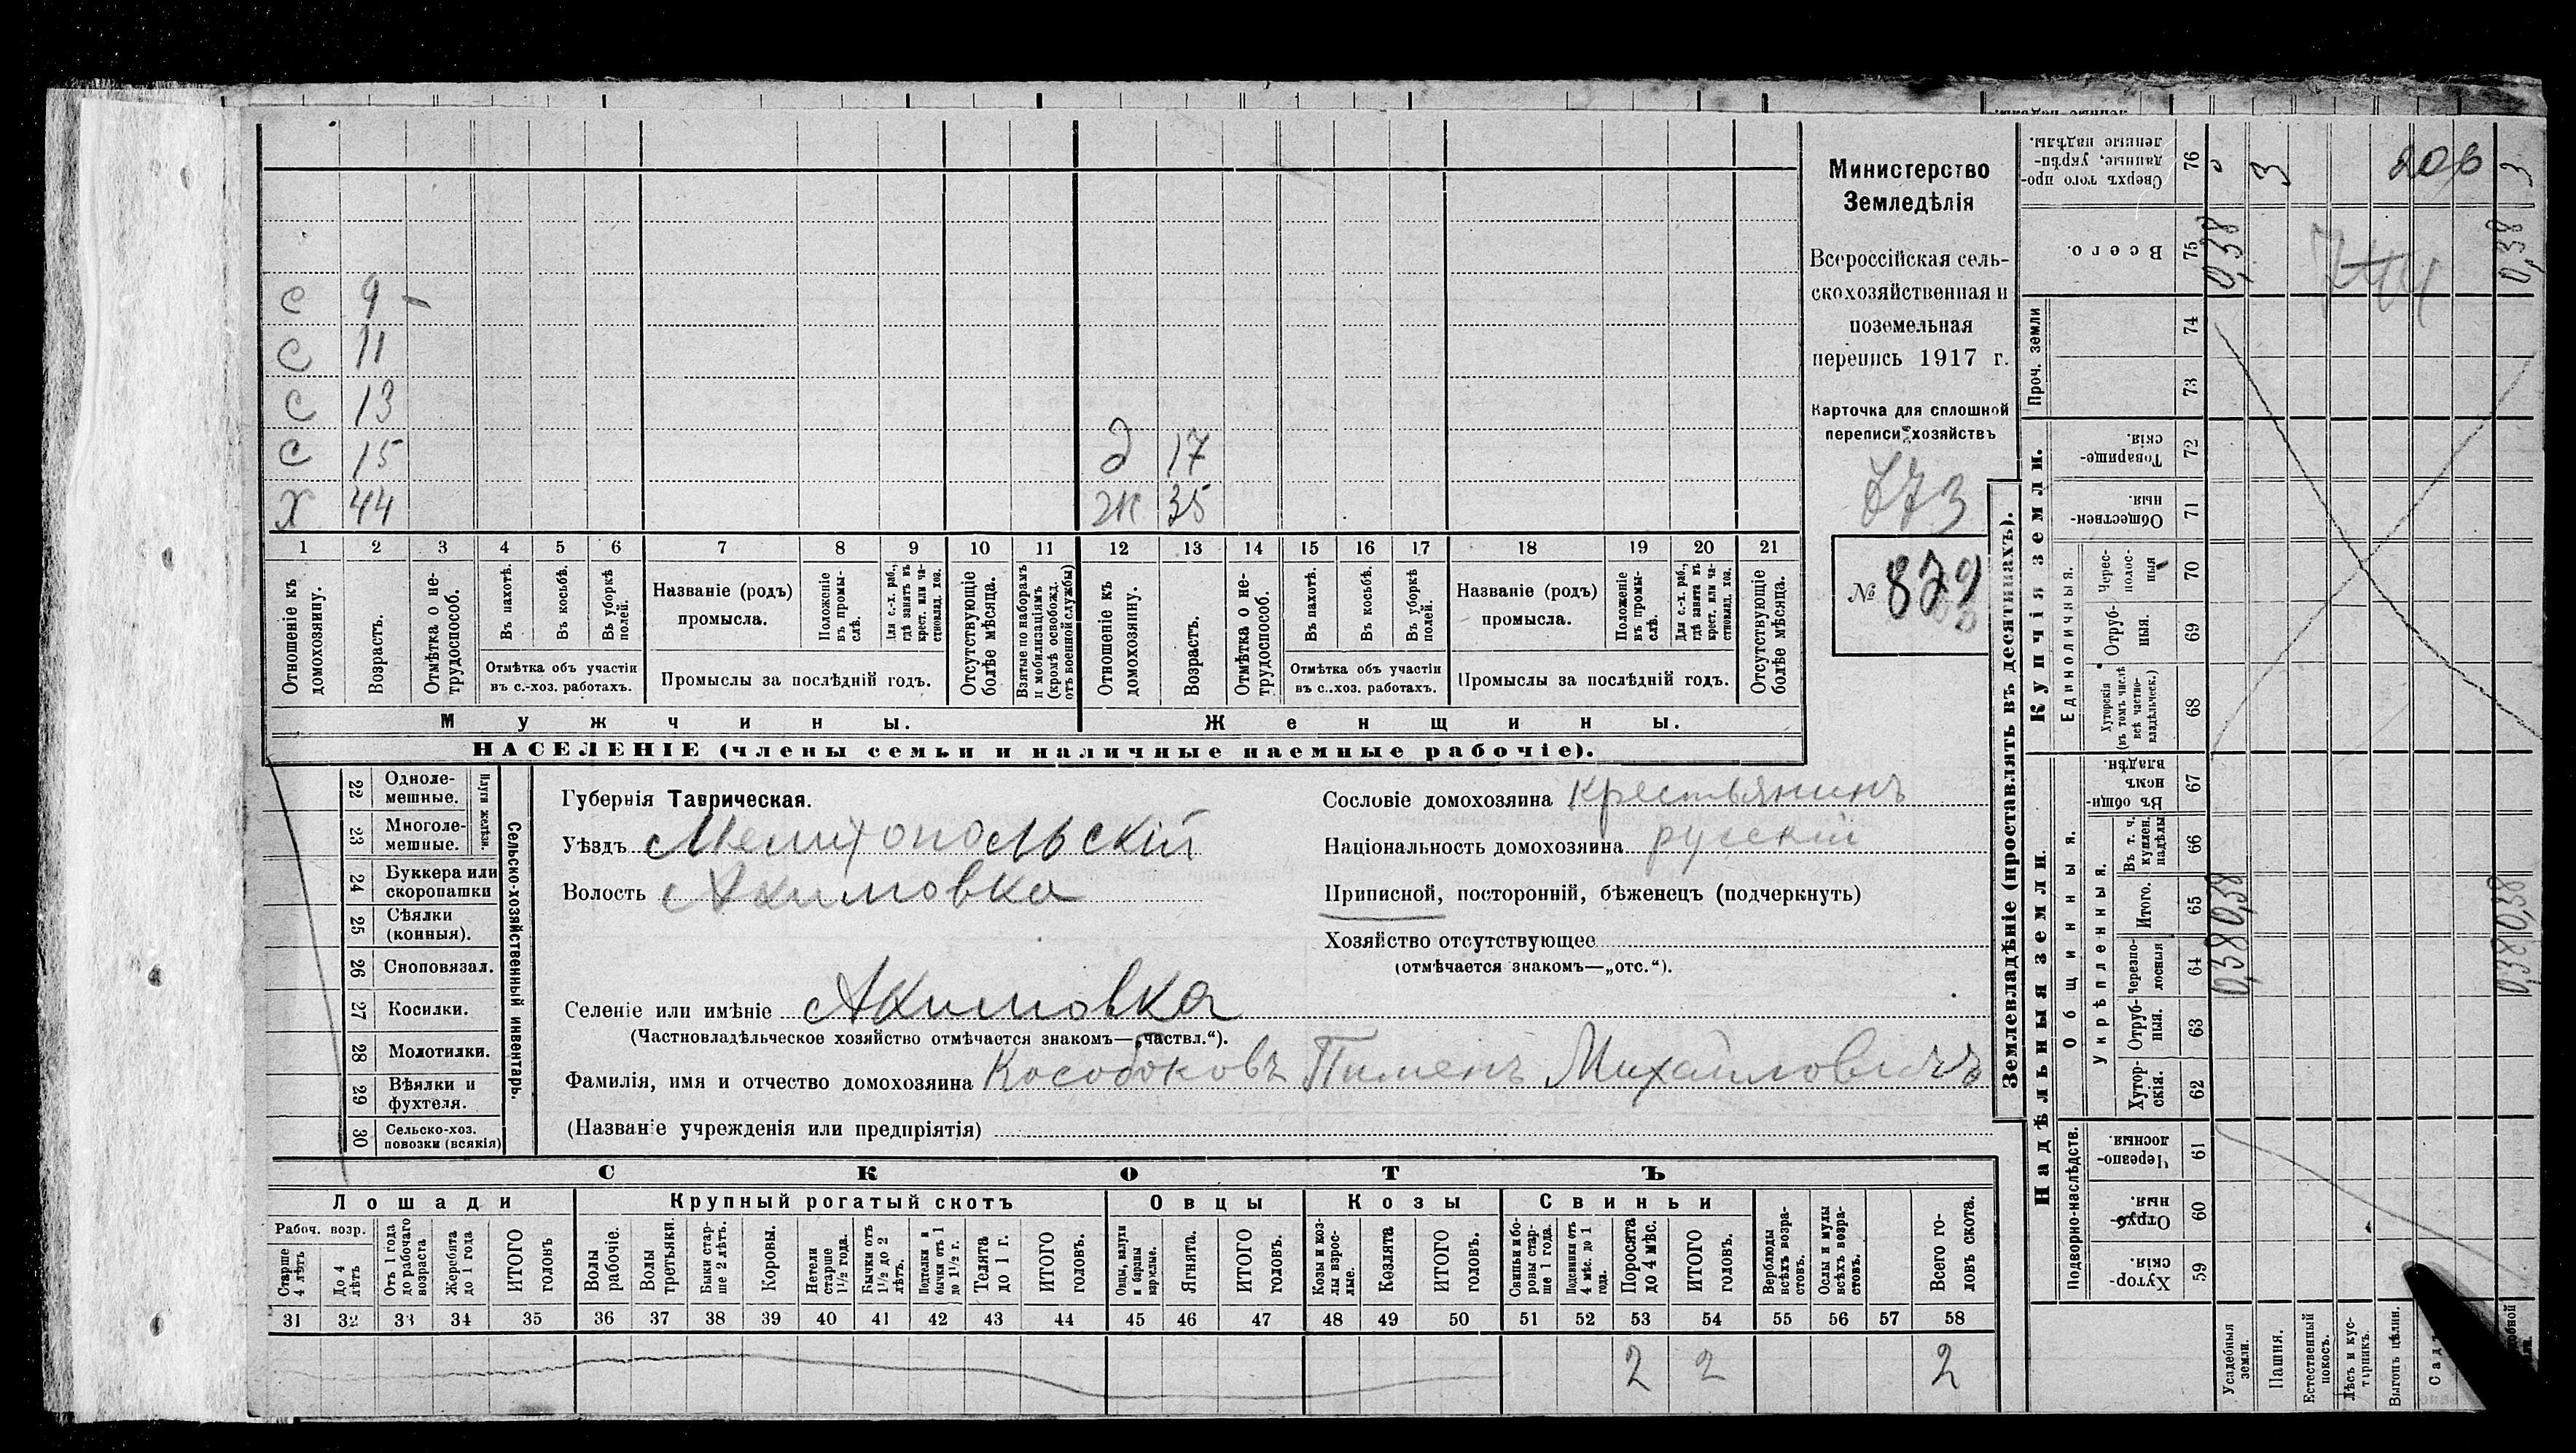 С 9 -
С 11
С 13
С 15 д 17
Х 44 Ж 35
1 2 3 4 5 6 7 8 9 10 11 12 13 14 15 16 17 18 19 20 21
Отношеніе къ домохозяину.
Возрастъ.
Отмѣтка о нетрудоспособ.
Въ пахотѣ.
Въ косьбѣ.
Въ уборкѣ полей.
Отмѣтка объ участіи
въ с.-хоз. работахъ.
Названіе (родъ)
промысла.
Положеніе въ промыслѣ.
Для с.-х. раб., гдѣ занятъ въ крест. или частновлад. хоз.
Промыслы за послѣдній годъ.
Отсутствующіе болѣе мѣсяца.
Взятые по наборамъ и мобилизаціямъ (кромѣ освобожд. отъ военной службы)
Отношеніе къ домохозяину.
Возрастъ.
Отмѣтка о нетрудоспособ.
Въ пахотѣ.
Въ косьбѣ.
Въ уборкѣ полей.
Отмѣтка объ участіи
въ с..хоз. работахъ.
Названіе (родъ)
промысла.
Положеніе въ промыслѣ.
Для с.-х. раб., гдѣ занята въ крест. или частновлад. хоз.
Промыслы за послѣдній годъ.
Отсутствующіе болѣе мѣсяца.
Мужчины.
Женщины.
НАСЕЛЕНІЕ (члены семьи и наличные наемные рабочіе).
Министерство
Земледѣлія
Всероссійская сель-
скохозяйственная и
поземельная
перепись 1917 г.
Карточка для сплошной
переписи хозяйствъ
№
Сельско-хозяйственный инвентарь.
Плуги желѣзн.
22 Одноле-
мешные.
23 Многоле-
мешные.
24 Буккера или
скоропашки
25 Сѣялки
(конныя).
26 Сноповязал.
27 Косилки.
28 Молотилки.
29 Вѣялки и
фухтеля.
30 Сельско-хоз.
повозки (всякія)
Губернія Таврическая.
Уѣздъ Мелитопольскій
Волость Акимовка
Селеніе или имѣніе Акимовка
(Частновладѣльческое хозяйство отмѣчается знакомъ—„частвл.“).
Фамилія, имя и отчество домохозяина Кособоковъ Пименъ Михайловичъ
(Названіе учрежденія или предпріятія)
Сословіе домохозяина крестьянинъ
Національность домохозяина русскій
Приписной, посторонній, бѣженецъ (подчеркнуть)
Хозяйство отсутствующее
(отмѣчается знакомъ—„отс.“).
СКОТЪ
Лошади
Крупный рогатый скотъ
Овцы
Козы
Свиньи
Рабоч. возр.
Старше 4 лѣтъ
До 4 лѣтъ
Отъ 1 года до рабочаго возраста
Жеребята до 1 года
ИТОГО головъ
Волы рабочіе.
Волы третьяки.
Быки старше 2 лѣтъ.
Коровы.
Нетели старше 1½ года.
Бычки отъ 1½ до 2 лѣтъ.
Подтелки и бычки отъ 1 до 1½ г.
Телята до 1 г.
ИТОГО головъ.
Овцы, валухи и бараны взрослые.
Ягнята.
ИТОГО головъ.
Козы и козлы взрослые.
Козлята
ИТОГО головъ.
Свиньи и боровы старше 1 года.
Подсвинки отъ 4 мѣс. до 1 года.
Поросята до 4 мѣс.
ИТОГО головъ.
Верблюды всѣхъ возрастовъ.
Ослы и мулы всѣхъ возрастовъ.
Всего головъ скота.
31 32 33 34 35 36 37 38 39 40 41 42 43 44 45 46 47 48 49 50 51 52 53 54 55 56 57 58
2 2 2
Землевладѣніе (проставлять въ десятинахъ).
Сверхъ того проданные, укрѣпленные надѣлы. 76
Всего. 75 0,38 0,38
Проч. земли 74 73
Купчія земли.
Товарищескія. 72
Общественныя. 71
Единоличныя.
Чересполосныя 70
Отрубныя. 69
Хуторскія (въ томъ числѣ всѣ частновладѣльческ.) 68
Надѣльныя земли.
Общинныя.
Въ общинномъ владѣн. 67
Укрѣпленныя.
Въ т. ч. куплен. надѣлы 66
Итого. 65 0,38 0,38
Черезполосныя 64 0,38 0,38
Отрубныя. 63
Хуторскія. 62
Подворно-наслѣдств.
Черезполосныя. 61
Отрубныя. 60
Хуторскія. 59
Усадебныя земли.
Пашня.
Естественный покосъ.
Лѣсъ и кустарникъ.
Выгонъ цѣлин.